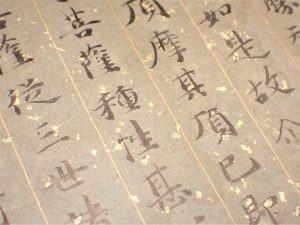 天
如是故今
頂摩其頂已即
菩薩種性甚
薩從三世